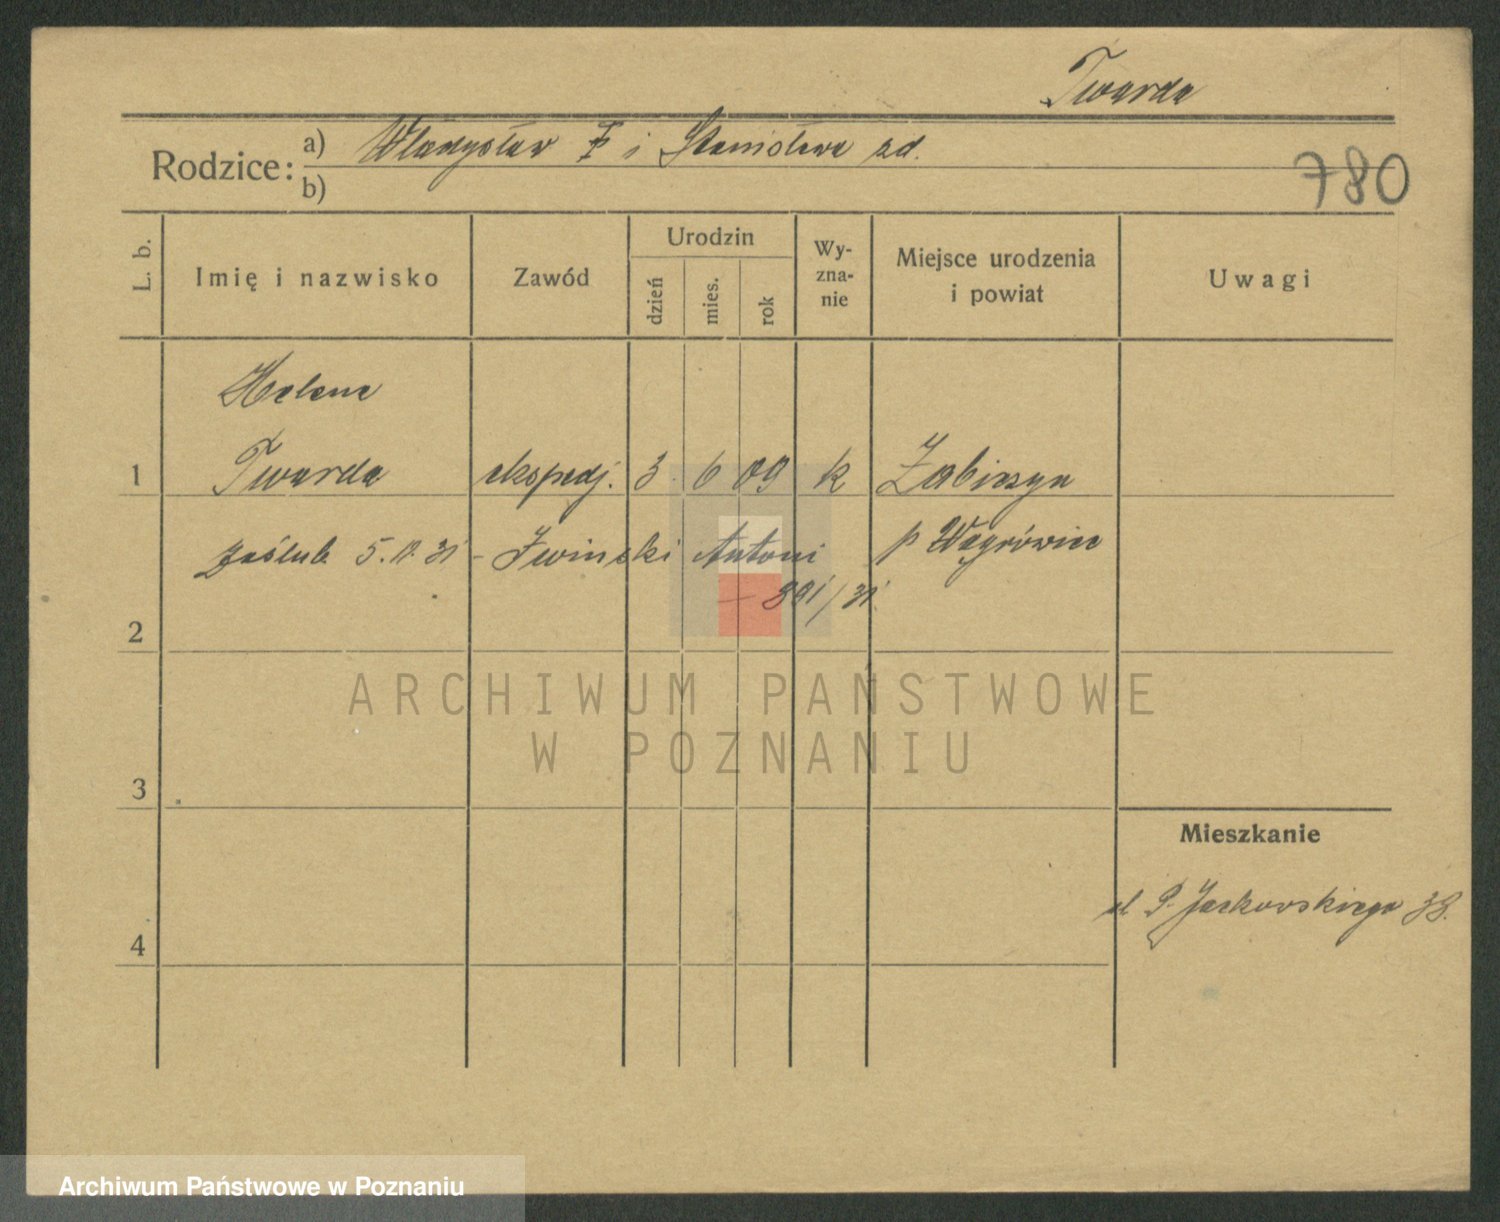 Twarda
Rodzice: a) Władysław i Stanisława zd.
b)
780
L. b.
Imię i nazwisko
Zawód
Urodzin
dzień
mies.
rok
Wy-
zna-
nie
Miejsce urodzenia
i powiat
Uwagi
Helena
1 Twarda ekspedj. 3 6 09 k Żabiczyn
zaślub. 5. 31 - Iwinski Antoni p Wągrówiec
- 891/31
2
3
4
Mieszkanie
ul. P. Jackowskiego 38.
ARCHIWUM PAŃSTWOWE
W POZNANIU
Archiwum Państwowe w Poznaniu